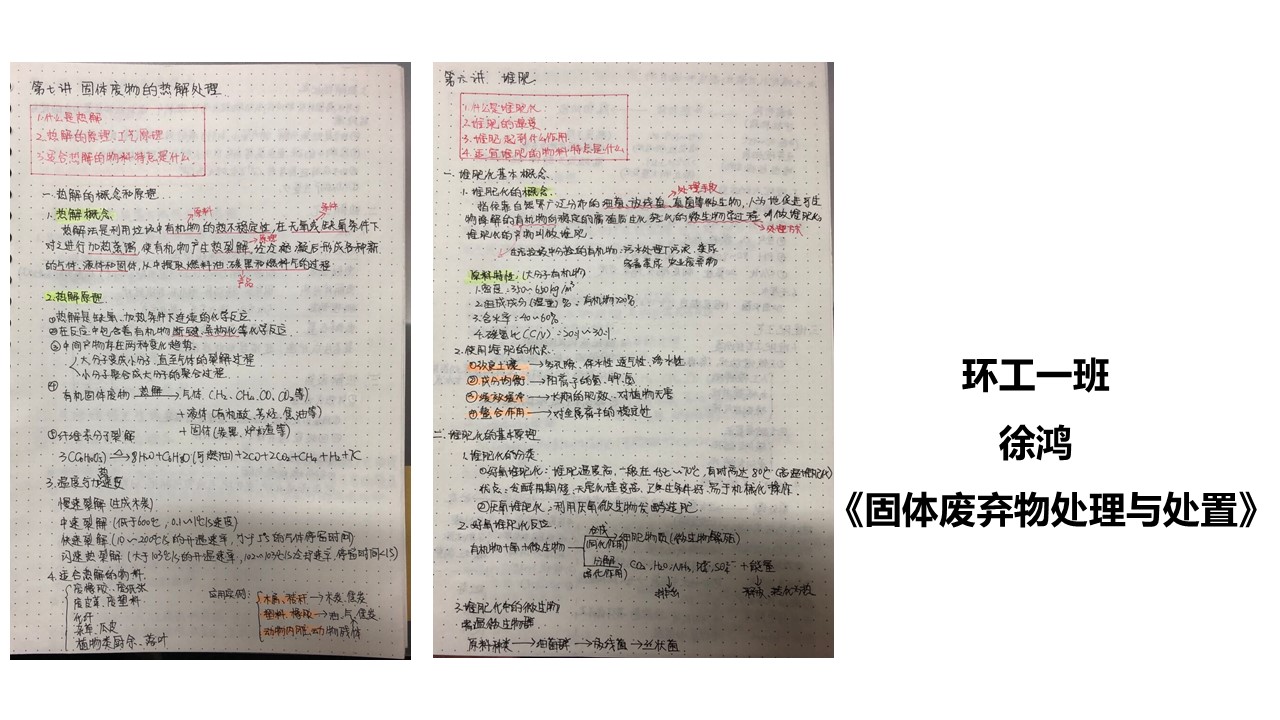 第七讲 固体废物的热解处理
1.什么是热解
2.热解的原理、工艺原理
3.适合热解的物料特点是什么
一.热解的概念和原理
1.热解概念
原料
条件
热解法是利用垃圾中有机物的热不稳定性,在无氧或缺氧条件下
对之进行加热蒸馏,使有机物产生热裂解,经冷凝后形成各种新
原理
的气体、液体和固体,从中提取燃料油、碳黑和燃料气的过程
产品
2.热解原理
①热解是缺氧、加热条件下连续的化学反应
②在反应中包含着有机物断键、异构化等化学反应
③中间产物存在两种变化趋势:
大分子变成小分子,直至气体的裂解过程
小分子聚合成大分子的聚合过程
④
有机固体废物 热解→气体(CH₂、CH₄、CO、CO₂等)
+液体(有机酸、芳烃、焦油等)
+固体(炭黑、炉渣等)
⑤纤维素分子裂解
3(C₆H₁₀O₅) →8H₂O+C₆H₈O(可燃油)+2CO+2CO₂+CH₄+H₂+7C
3.温度与加热速度
慢速裂解(生成木炭)
中速裂解(低于600℃,0.1~1℃/s速度)
快速裂解(10~200℃/s的升温速率,小于1s的气体停留时间)
闪速热裂解(大于103℃/s的升温速率,102~103℃/s冷却速率,停留时间<1s)
4.适合热解的物料:
废橡胶、废纸张
废皮革、废塑料
化纤
菜草、瓜皮
植物类厨余、落叶
应用实例:
木屑、秸秆→木炭、焦炭
塑料、橡胶→油、气、焦炭
动物内脏、动物残体
第六讲 堆肥
1.什么是堆肥化
2.堆肥的温度
3.堆肥起到什么作用
4.适宜堆肥的物料特点是什么
一.堆肥化基本概念
1.堆肥化的概念
处理手段
指依靠自然界广泛分布的细菌、放线菌、真菌等微生物,人为地促进可生
物降解的有机物向稳定的腐殖质生化转化的微生物学过程叫做堆肥化
处理方式
堆肥化的产物叫做堆肥
生活垃圾中分捡的有机物、污水处理厂污泥、粪尿
禽畜粪尿、农业废弃物
原料特性:(大分子有机物)
1.密度:350~650kg/m³
2.组成成分(湿重)%:有机物≥20%
3.含水率:40~60%
4.碳氮比(C/N):20:1~30:1
2.使用堆肥的优点
①改良土壤→多孔隙、保水性、透气性、渗水性
②成分均衡→阳离子的氮、钾、氨
③缓效缓冲→长期的肥效、对植物无害
④螯合作用→对金属离子的稳定性
二.堆肥化的基本原理
1.堆肥化的分类
①好氧堆肥化:堆肥温度高,一般在45℃~70℃,有时高达80℃(高温堆肥化)
优点:发酵周期短、无害化程度高、卫生条件好、易于机械化操作
②厌氧堆肥化:利用厌氧微生物发酵造肥
2.好氧堆肥化反应
合成
(同化作用)
细胞物质(微生物繁殖)
有机物+氧+微生物
分解
(异化作用)
CO₂、H₂O、NH₃、SO₄²⁻+能量
3.堆肥化中的微生物
原料种类→细菌群→放线菌→丝状菌
环工一班
徐鸿
《固体废弃物处理与处置》